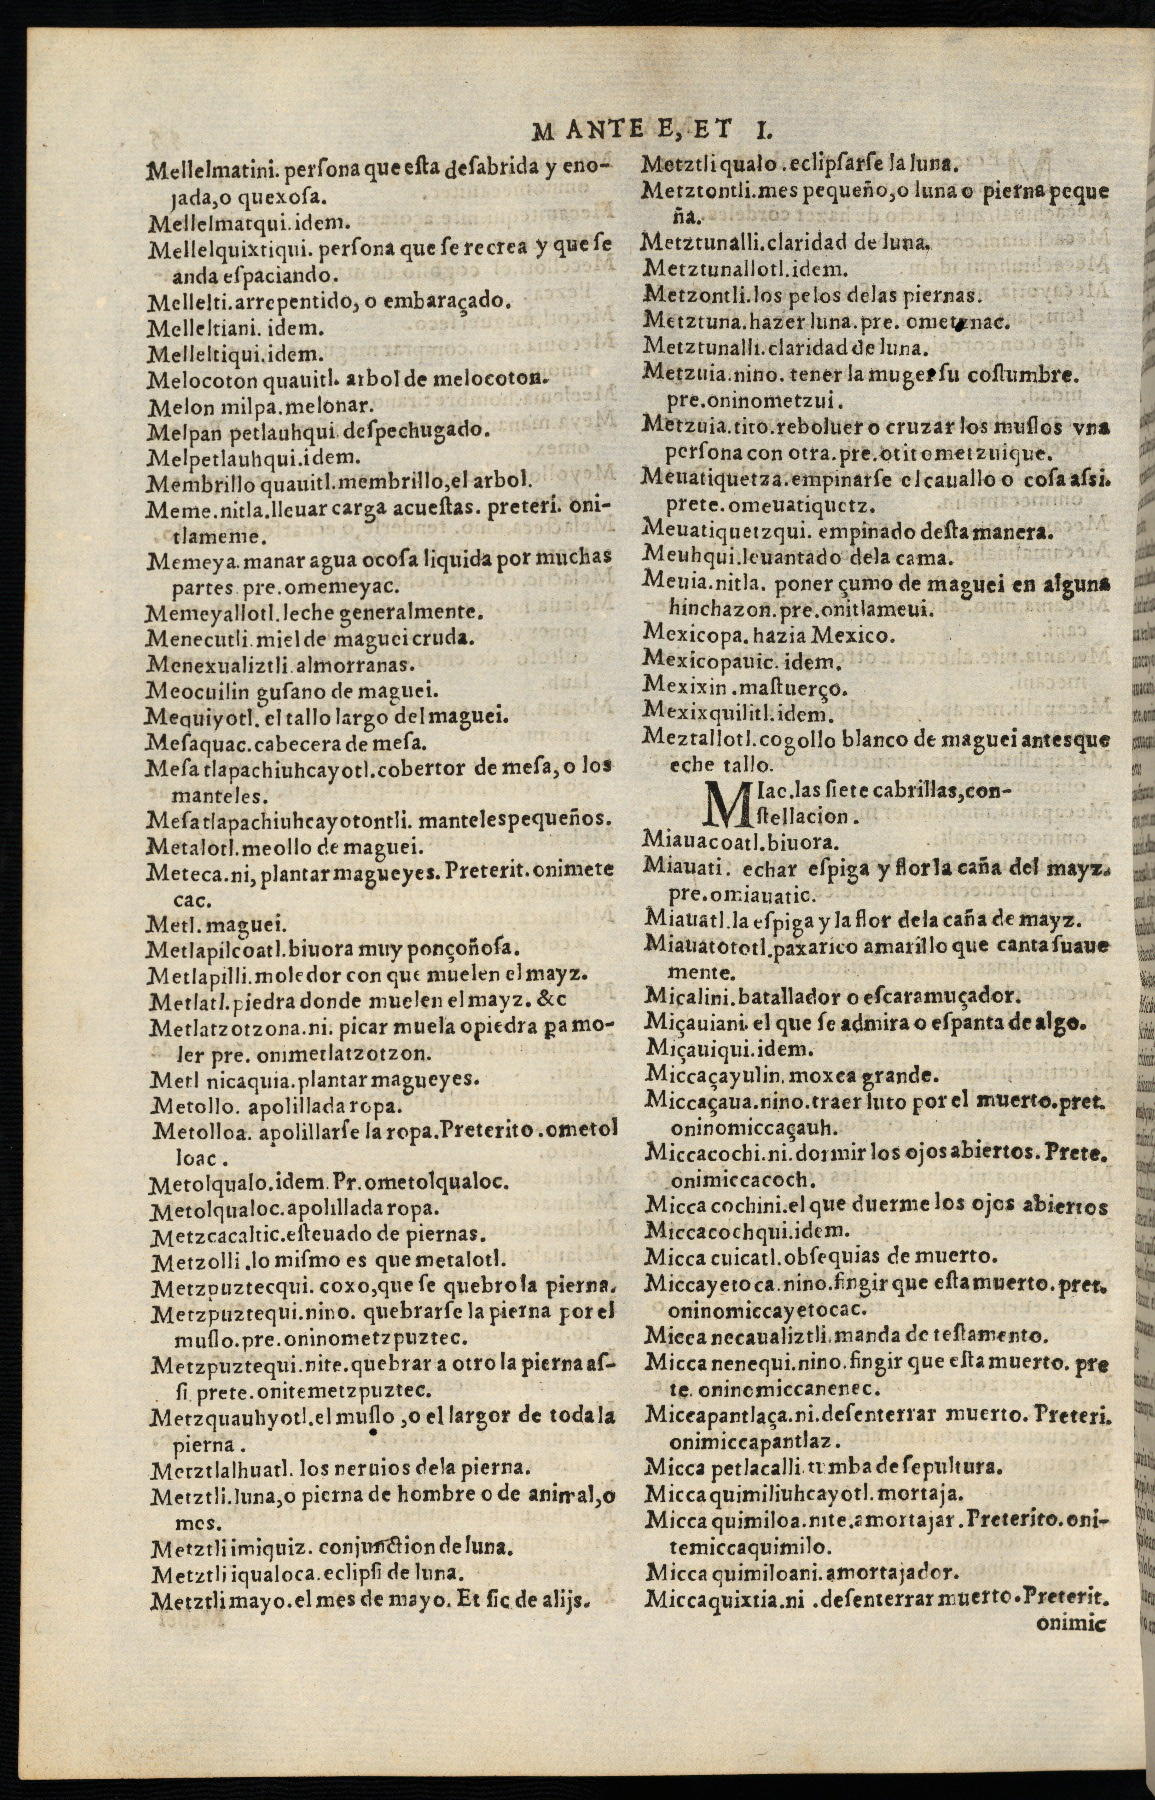 M ANTE E, ET I.
Mellelmatini. perſona que eſta deſabrida y eno-
jada,o quexoſa.
Mellelmatqui.idem.
Mellelquixtiqui. perſona que ſe recrea y que ſe
anda eſpaciando.
Mellelti.arrepentido, o embaraçado.
Melleltiani. idem.
Melleltiqui.idem.
Melocoton quauitl. arbol de melocoton.
Melon milpa.melonar.
Melpan petlauhqui deſpechugado.
Melpetlauhqui.idem.
Membrillo quauitl.membrillo,el arbol.
Meme.nitla.lleuar carga acueſtas. preteri. oni-
tlameme.
Memeya.manar agua ocoſa liquida por muchas
partes pre.omemeyac.
Memeyallotl.leche generalmente.
Menecutli.miel de maguei cruda.
Menexualiztli.almorranas.
Meocuilin guſano de maguei.
Mequiyotl. el tallo largo del maguei.
Meſaquac.cabecera de meſa.
Meſa tlapachiuhcayotl.cobertor de meſa, o los
manteles.
Meſatlapachiuhcayotontli. mantelespequeños.
Metalotl.meollo de maguei.
Meteca.ni, plantar magueyes. Preterit.onimete
cac.
Metl. maguei.
Metlapilcoatl.biuora muy ponçoñoſa.
Metlapilli.moledor con que muelen el mayz.
Metlatl.piedra donde muelen el mayz. &c
Metlatzotzona.ni. picar muela opiedra pa mo-
ler pre. onimetlatzotzon.
Metl nicaquia.plantar magueyes.
Metollo. apolillada ropa.
Metolloa. apolillarſe la ropa.Preterito.ometol
loac.
Metolqualo.idem.Pr.ometolqualoc.
Metolqualoc.apolillada ropa.
Metzcacaltic.eſteuado de piernas.
Metzolli .lo miſmo es que metalotl.
Metzpuztecqui. coxo,que ſe quebro la pierna.
Metzpuztequi.nino. quebrarſe la pierna por el
muſlo.pre.oninometzpuztec.
Metzpuztequi.nite.quebrar a otro la pierna aſ-
ſi prete.onitemetzpuztec.
Metzquauhyotl.el muſlo ,o el largor de toda la
pierna.
Metztlalhuatl. los neruios dela pierna.
Metztli.luna,o pierna de hombre o de animal,o
mes.
Metztli imiquiz. conjunction de luna.
Metztli iqualoca.eclipſi de luna.
Metztli mayo.el mes de mayo. Et ſic de alijs.
Metztli qualo .eclipſarſe la luna.
Metztontli.mes pequeño,o luna o pierna peque
ña.
Metztunalli.claridad de luna.
Metztunallotl.idem.
Metzontli.los pelos delas piernas.
Metztuna.hazer luna.pre. ometznac.
Metztunalli.claridad de luna.
Metzuia.nino. tener la muger ſu coſtumbre.
pre.oninometzui.
Metzuia.tito.reboluer o cruzar los muſlos vna
perſona con otra.pre.otitometzuique.
Meuatiquetza.empinarſe el cauallo o coſa aſſi.
prete.omeuatiquetz.
Meuatiquetzqui. empinado deſta manera.
Meuhqui.leuantado dela cama.
Meuia.nitla. poner çumo de maguei en alguna
hinchazon.pre.onitlameui.
Mexicopa.hazia Mexico.
Mexicopauic. idem.
Mexixin.maſtuerço.
Mexixquilitl.idem.
Meztallotl.cogollo blanco de maguei antesque
eche tallo.
MIac.las ſiete cabrillas,con-
ſtellacion.
Miauacoatl.biuora.
Miauati. echar eſpiga y flor la caña del mayz.
pre.omiauatic.
Miauatl.la eſpiga y la flor dela caña de mayz.
Miauatototl.paxarico amarillo que canta ſuaue
mente.
Miçalini.batallador o eſcaramuçador.
Miçauiani. el que ſe admira o eſpanta de algo.
Miçauiqui.idem.
Miccaçayulin. moxca grande.
Miccaçaua.nino.traer luto por el muerto.pret.
oninomiccaçauh.
Miccacochi.ni.dormir los ojos abiertos. Prete.
onimiccacoch.
Micca cochini.el que duerme los ojos abiertos
Miccacochqui.idem.
Micca cuicatl.obſequias de muerto.
Miccayetoca.nino.fingir que eſta muerto. pret.
oninomiccayetocac.
Micca necaualiztli.manda de teſtamento.
Micca nenequi.nino.fingir que eſta muerto. pre
te. oninomiccanenec.
Miccapantlaça.ni.deſenterrar muerto. Preteri.
onimiccapantlaz.
Micca petlacalli.tumba de ſepultura.
Micca quimiliuhcayotl.mortaja.
Micca quimiloa.nite.amortajar.Preterito.oni-
temiccaquimilo.
Micca quimiloani.amortajador.
Miccaquixtia.ni .deſenterrar muerto.Preterit.
onimic